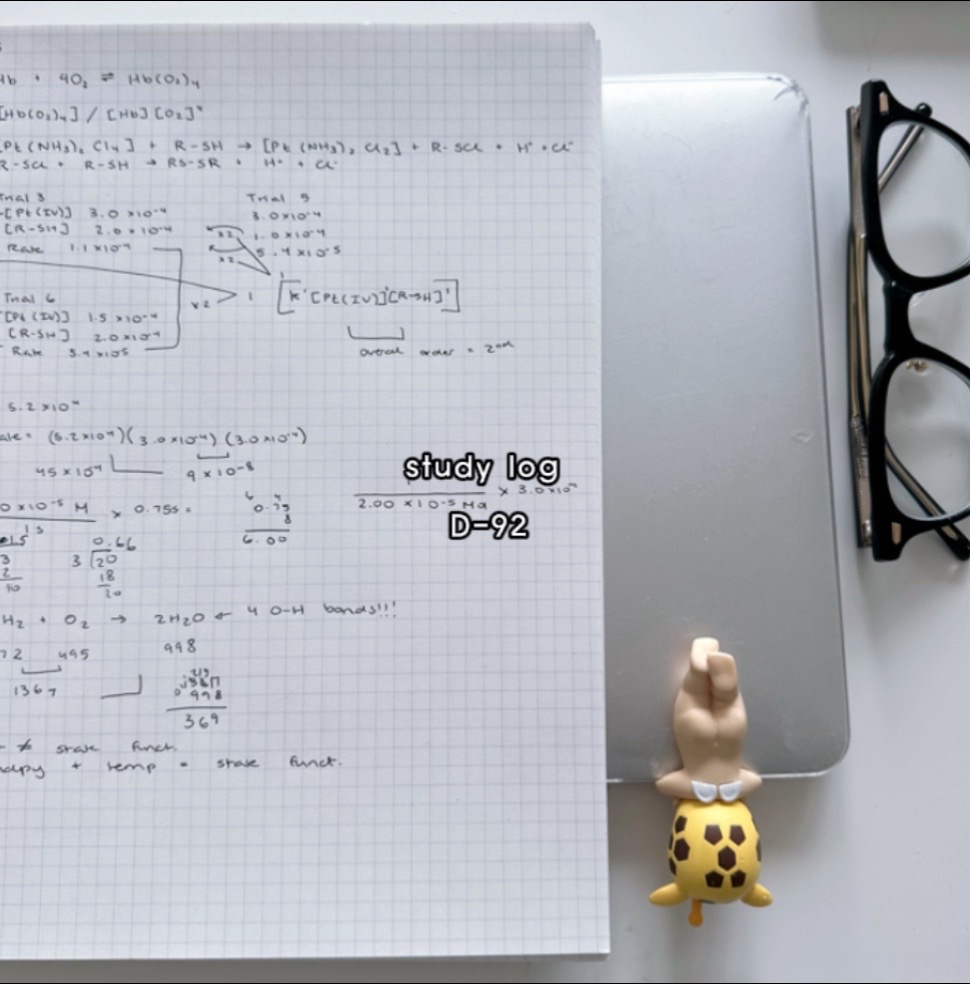 Hb + 4O₂ ⇌ Hb(O₂)₄
[Hb(O₂)₄] / [Hb][O₂]⁴
[Pt(NH₃)₂Cl₄] + R-SH → [Pt(NH₃)₂Cl₂] + R-SCl + H⁺ + Cl⁻
R-SCl + R-SH → RS-SR + H⁺ + Cl⁻
Trial 3
[Pt(IV)] 3.0 × 10⁻⁴
[R-SH] 2.0 × 10⁻⁴
Rate 1.1 × 10⁻⁴
Trial 5
3.0 × 10⁻⁴
1.0 × 10⁻⁴
5.4 × 10⁻⁵
×2
×2
Trial 6
[Pt(IV)] 1.5 × 10⁻⁴
[R-SH] 2.0 × 10⁻⁴
Rate 5.4 × 10⁻⁵
×2
1
[k'[Pt(IV)]¹[R-SH]¹]
overall order = 2nd
5.2 × 10
(5.2 × 10)(3.0 × 10⁻⁴)(3.0 × 10⁻⁴)
45 × 10
9 × 10⁻⁸
study log
D-92
0 × 10⁻⁵ M
1 s
× 0.75s =
0.75
8
6.00
2.00 × 10⁻⁵ M
× 3.0 × 10
0.66
3 20
18
20
H₂ + O₂ → 2H₂O ← 4 O-H bonds!!!
72 495
998
1367
998
369
≠ state funct.
+ temp = state funct.